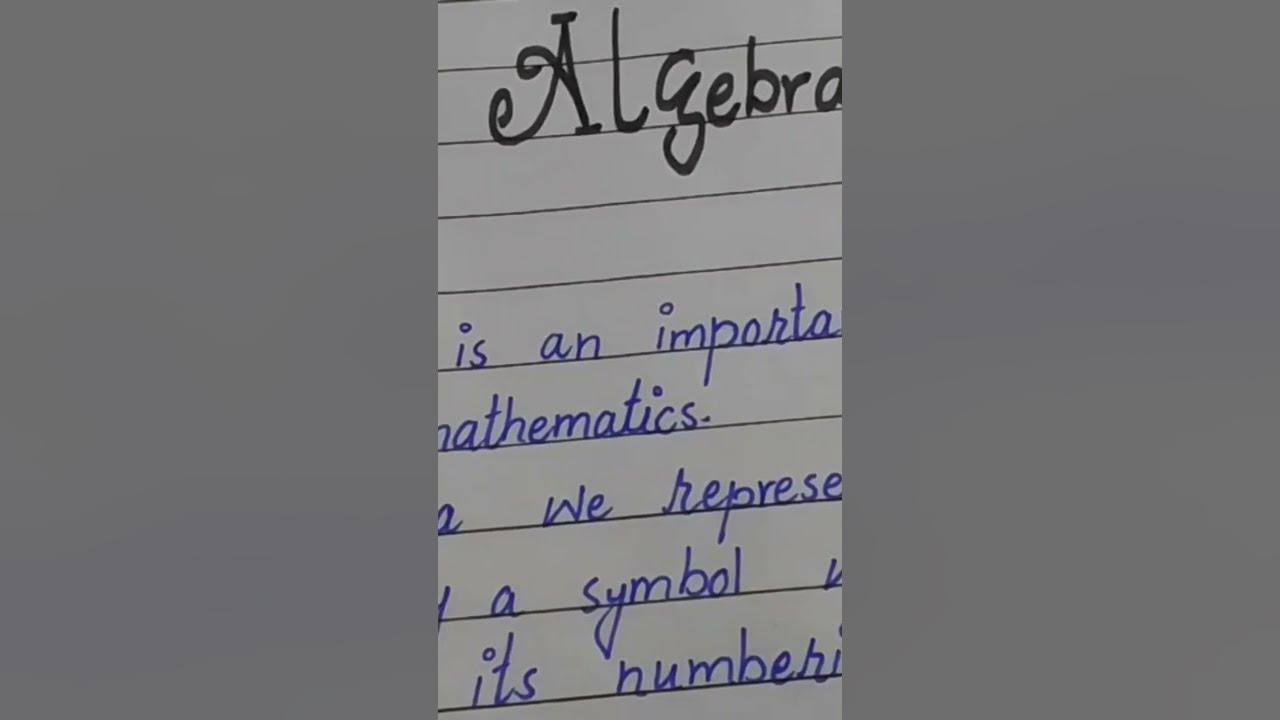 Algebra
is an importa
mathematics.
a We represe
a symbol
its numberi